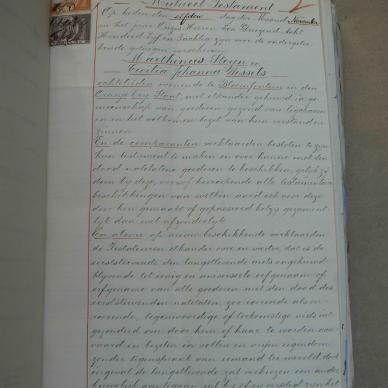 Mutueel Testament
Op heden den elfden dag der Maand November
in het jaar Onzes Heeren Een Duizend Acht
Honderd Vijf en Tachtig zyn voor de onderget
kende getuigen verschenen
Marthinus Steyn en
Cecilia Johanna Wessels
echtelieden wonende te Bloemfontein in den
Oranje Vry Staat, met elkander gehuwd in ge
meenschap van goederen gezond van lichaam
en in het volkomen bezit van hun verstanden
zinnen
En de comparanten verklaarden besloten te zyn
hun testament te maken en over hunne met den
dood natelatene goederen te beschikken, gelyk zy
doen by deze, herroepende alle testamentaire
beschikkingen van welken aard ook voor deze
door hen gemaakt of gepasseerd hetzy gezament
lyk dan wel afzonderlyk
En alsnu op nieuw beschikkende verklaarden
de Testateuren elkander over en weder, dat is de
eerststervende den langstlevende
tot eenig en universeele erfgenaam of
erfgename van alle goederen met den dood des
eerststervenden natelaten, zoo roerende als on-
roerende, tegenwoordige of toekomstige niets uit
gezonderd om door hem of haar te worden aan
vaard en bezeten in vollen en vryen eigendom
zonder tegenspraak van iemand ter wereld, doch
ingeval de langstlevende zal verkiezen een ander
huwelyk aantegaan zal hy of zy verplicht zyn het